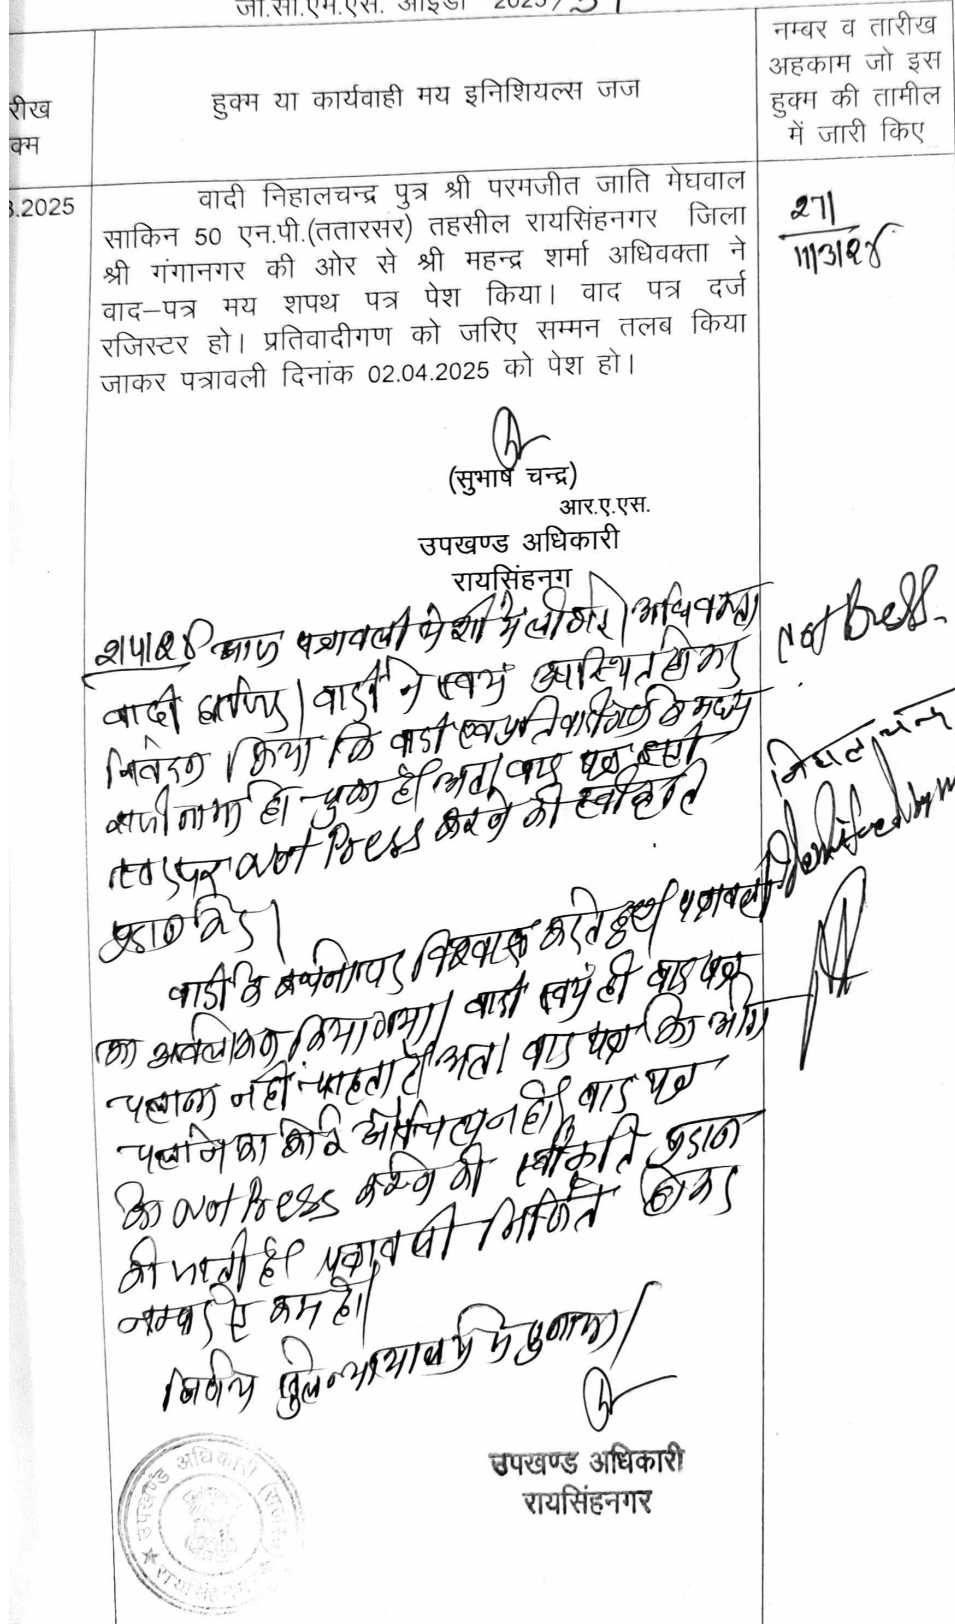 जी.सी.एम.एस. आईडी 2025/51
नम्बर व तारीख
अहकाम जो इस
हुक्म की तामील
में जारी किए
हुक्म या कार्यवाही मय इनिशियल्स जज
रीख
क्म
3.2025
वादी निहालचन्द्र पुत्र श्री परमजीत जाति मेघवाल
साकिन 50 एन.पी.(ततारसर) तहसील रायसिंहनगर जिला
श्री गंगानगर की ओर से श्री महन्द्र शर्मा अधिवक्ता ने
वाद–पत्र मय शपथ पत्र पेश किया। वाद पत्र दर्ज
रजिस्टर हो। प्रतिवादीगण को जरिए सम्मन तलब किया
जाकर पत्रावली दिनांक 02.04.2025 को पेश हो।
271
11/3/25
(सुभाष चन्द्र)
आर.ए.एस.
उपखण्ड अधिकारी
रायसिंहनग
2/4/25 आज पत्रावली पेशी में ली गई। अधिवक्ता
वादी हाजिर। वादी ने स्वयं उपस्थित होकर
निवेदन किया कि वादी एवं प्रतिवादीगण के मध्य
राजीनामा हो चुका है। अतः वाद पत्र इसी
स्तर पर Not Press करने की स्वीकृति
प्रदान करें।
Not Press.
निहालचन्द्र
Identified by me
वादी के कथनों पर विश्वास करते हुए पत्रावली
का अवलोकन किया गया। वादी स्वयं ही वाद पत्र
चलाना नहीं चाहता है। अतः वाद पत्र को आगे
चलाने का कोई औचित्य नहीं। वाद पत्र
को Not Press करने की स्वीकृति प्रदान
की जाती है। पत्रावली निर्णित होकर
नम्बर से कम हो।
निर्णय खुले न्यायालय में सुनाया।
उपखण्ड अधिकारी
रायसिंहनगर
उपखण्ड अधिकारी
रायसिंहनगर